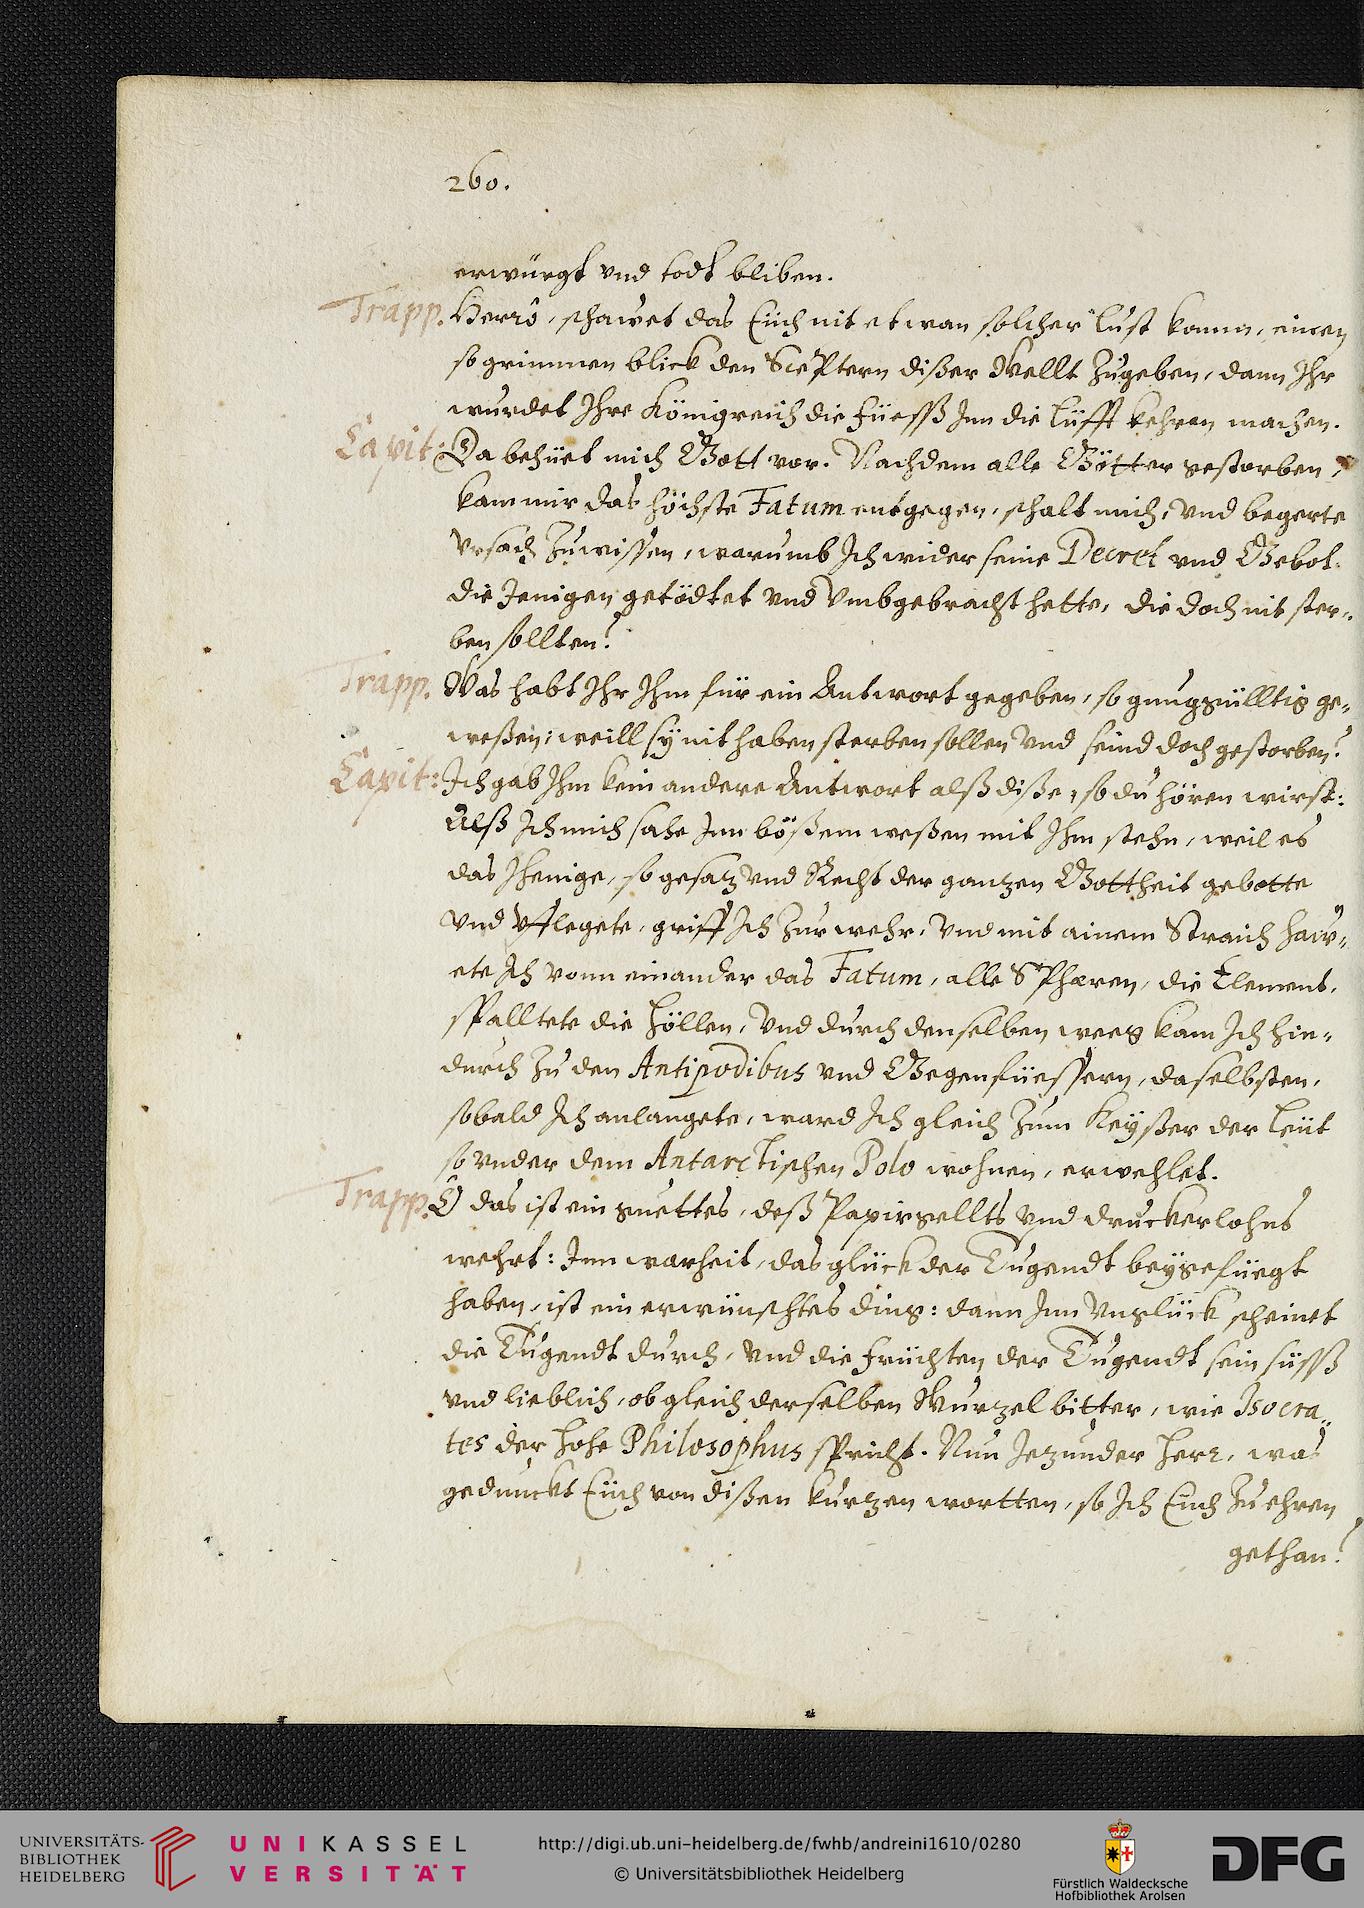 260.
erwürgt vnd todt bliben.
Trapp. Herrô, schawet das Eüch nit etwan solcher lust komm, einen
so grimmen blick den Sceptern dißer Wellt zugeben, dann Ihr
wurdet Ihre Königreich die füeß Inn die lüfft kehren machen.
Capit: Da behüet mich Gott vor. Nachdem alle Götter gestorben,
kam mir das höchste Fatum entgegen, schalt mich, vnd begerte
vrsach zuwissen, warumb Ich wider seine Decret vnd Gebot
die Jenigen getödtet vnd vmbgebracht hette, die doch nit ster,,
ben sollten?
Trapp. Was habt Ihr Ihm für ein Antwort gegeben, so gnugsülltig ge,,
weßen; weill sy nit haben sterben sollen vnd seind doch gestorben?
Capit: Ich gab Ihm kein andere Antwort alß diße, so du hören wirst:
Alß Ich mich sahe Inn bößem weßen mit Ihm stehn, weil es
das Ihenige, so gesatz vnd Recht der gantzen Gottheit gebotte
vnd vfflegete, griff Ich zur wehr, vnd mit ainem Straich haw,,
ete Ich vonn einander das Fatum, alle Sphæren, die Element,
spalltete die höllen, vnd durch denselben weeg kam Ich hin,,
durch zu den Antipodibus vnd Gegenfüessern, daselbsten,
sobald Ich anlangete, ward Ich gleich zum Keyßer der leüt
so vnder dem Antarctischen Polo wohnen, erwehlet.
Trapp. O das ist ein guettes, deß Papirgellts vnd druckerlohns
wehrt: Inn warheit, das glück der Tugendt beygefüegt
haben, ist ein erwünschtes ding: dann Inn vnglück scheinet
die Tugendt durch, vnd die früchten der Tugendt sein süß
vnd lieblich, ob gleich derselben Wurzel bitter, wie Isocra,,
tes der hohe Philosophus spricht. Nun Jetzunder herr, was
gedunckt Eüch von dißen kurtzen wortten, so Ich Eüch zu ehren
gethan?
UNIVERSITÄTS-
BIBLIOTHEK
HEIDELBERG
UNIKASSEL
VERSITÄT
http://digi.ub.uni-heidelberg.de/fwhb/andreini1610/0280
© Universitätsbibliothek Heidelberg
Fürstlich Waldecksche
Hofbibliothek Arolsen
DFG